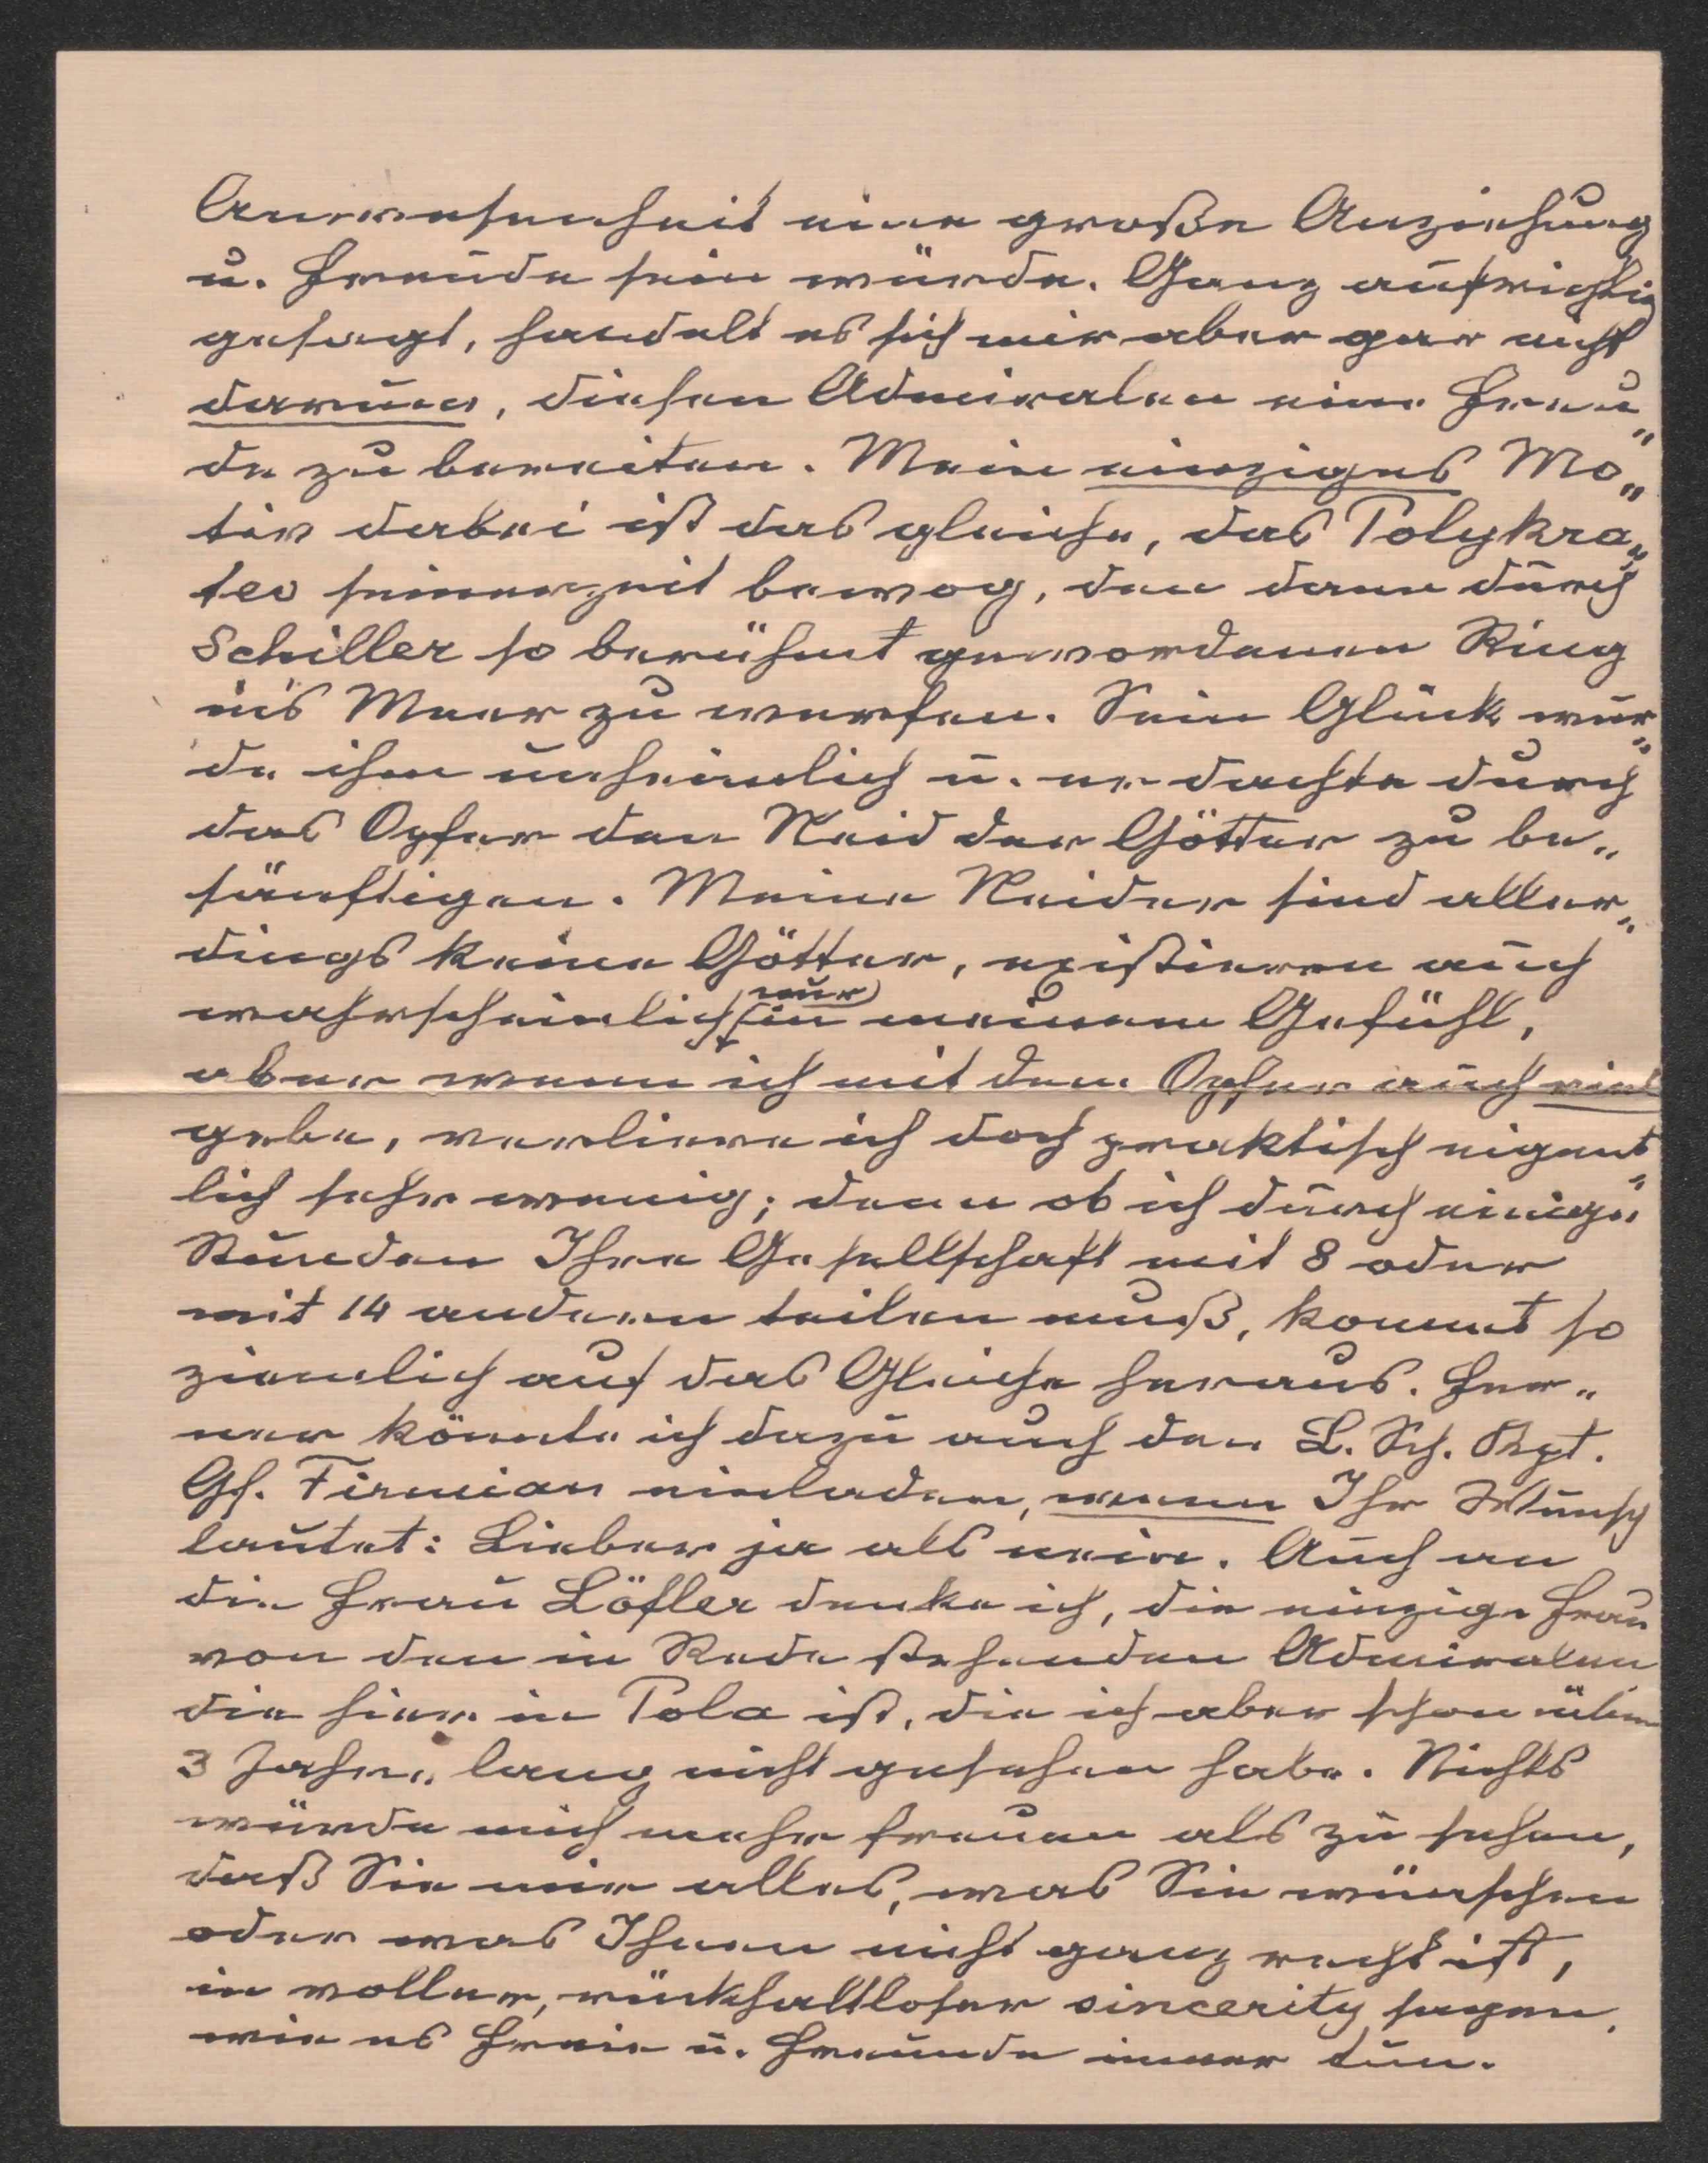 Anwesenheit eine große Anziehung
u. Freude sein würde. Ganz aufrichtig
gesagt, handelt es sich mir aber gar nicht
darum, diesen Admiralen eine Freu„
de zu bereiten. Mein einziges Mo„
tiv dabei ist das gleiche, das Polykra„
tes seinerzeit bewog, den dann durch
Schiller so berühmt gewordenen Ring
in's Meer zu werfen. Sein Glück wur„
de ihm unheimlich u. er dachte durch
das Opfer den Neid der Götter zu be„
sänftigen. Meine Neider sind aller„
dings keine Götter, existieren auch
wahrscheinlich nur in meinem Gefühl,
aber wenn ich mit dem Opfer auch viel
gebe, verliere ich doch praktisch eigent„
lich sehr wenig; denn ob ich durch einige
Stunden Ihre Gesellschaft mit 8 oder
mit 14 anderen teilen muß, kommt so
ziemlich auf das Gleiche heraus. Fer„
ner könnte ich dazu auch den L. Sch. Kpt.
Gf. Firmian einladen, wenn Ihr Wunsch
lautet: Lieber ja als nein. Auch an
die Frau Löfler denke ich, die einzige Frau
von den in Rede stehenden Admiralen
die hier in Pola ist, die ich aber schon über
3 Jahre lang nicht gesehen habe. Nichts
würde mich mehr freuen als zu sehen,
daß Sie mir alles, was Sie wünschen
oder was Ihnen nicht ganz recht ist,
in voller, rückhaltloser sincerity sagen,
wie es Freie u. Freunde immer tun.